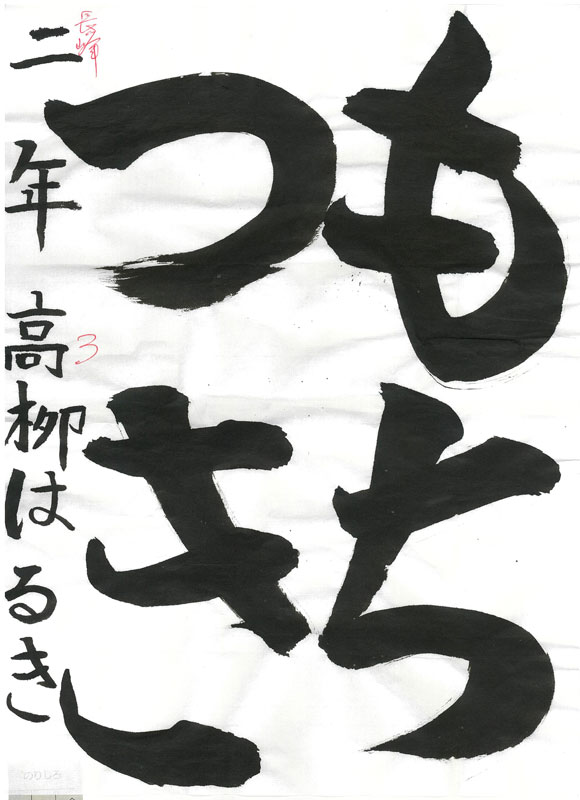 もち
つき
二年 高柳はるき
長峰
3
のりしろ